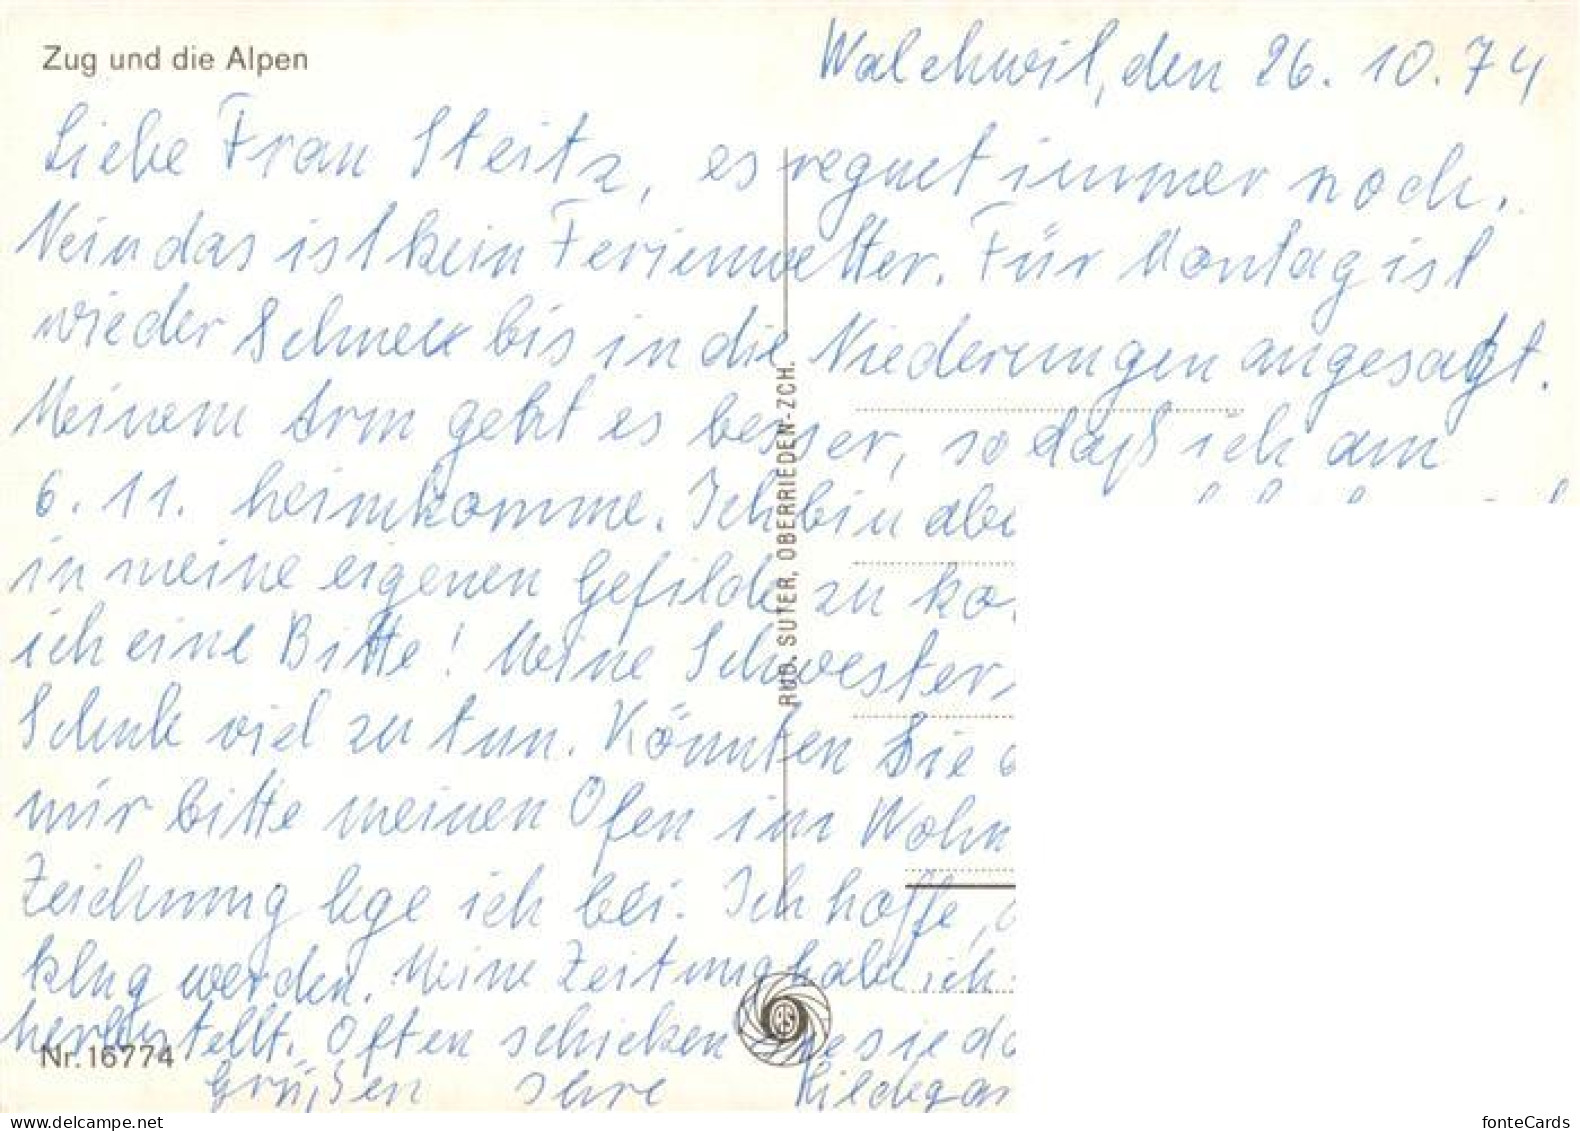 Zug und die Alpen
Walchwil, den 26. 10. 74
Liebe Frau Steitz, es regnet immer noch.
Nein das ist kein Ferienwetter. Für Montag ist
wieder Schnee bis in die Niederungen angesagt.
Meinem Arm geht es besser, so daß ich am
6. 11. heimkomme. Ich bin abe
in meine eigenen Gefilde zu ko
ich eine Bitte! Meine Schwester
Schule viel zu tun. Könnten Sie
mir bitte meinen Ofen im Wohn
Zeichnung lege ich bei. Ich hoffe,
klug werden. Meine Zeitung habe ich
Often schicken
Grüßen Ihre Hildegar
RUD. SUTER, OBERRIEDEN-ZCH.
Nr. 16774
fonteCards